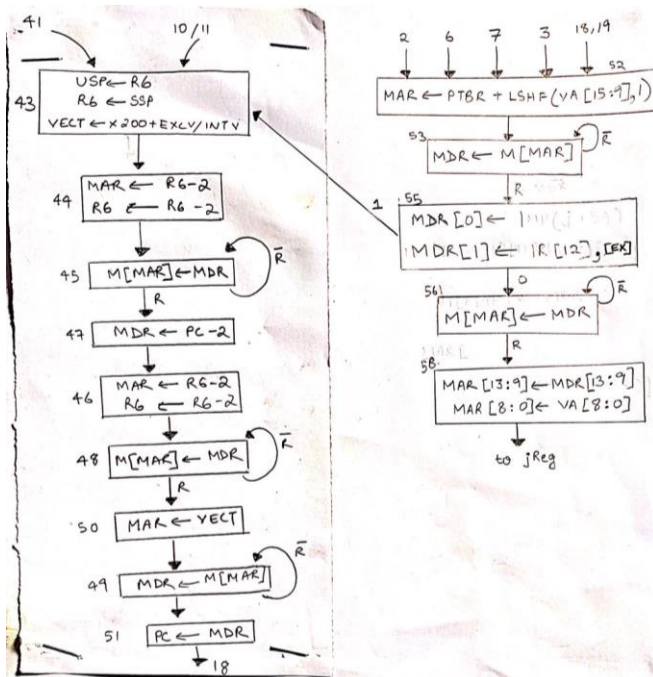 41
10/11
43
USP ← R6
R6 ← SSP
VECT ← x200 + EXCV/INTV
44
MAR ← R6-2
R6 ← R6-2
45
M[MAR] ← MDR
R̅
R
47
MDR ← PC-2
46
MAR ← R6-2
R6 ← R6-2
48
M[MAR] ← MDR
R̅
R
50
MAR ← VECT
49
MDR ← M[MAR]
R̅
51
PC ← MDR
18
2 6 7 3 18,19
52
MAR ← PTBR + LSHF(VA[15:9],1)
53
MDR ← M[MAR]
R̅
R
1
55
MDR[0] ← 1
MDR[1] ← IR[12], [EX]
0
56
M[MAR] ← MDR
R̅
R
58
MAR[13:9] ← MDR[13:9]
MAR[8:0] ← VA[8:0]
to jReg